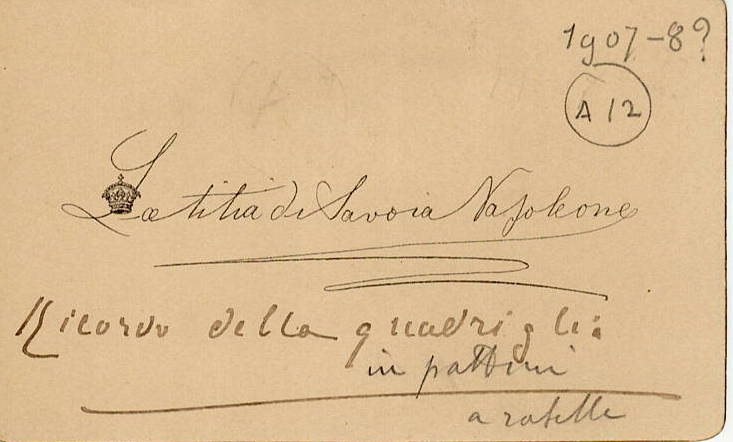 1907-8?
A 12
Laetitia di Savoia Napoleone
Ricordo della quadriglia
in pattini
a rotelle